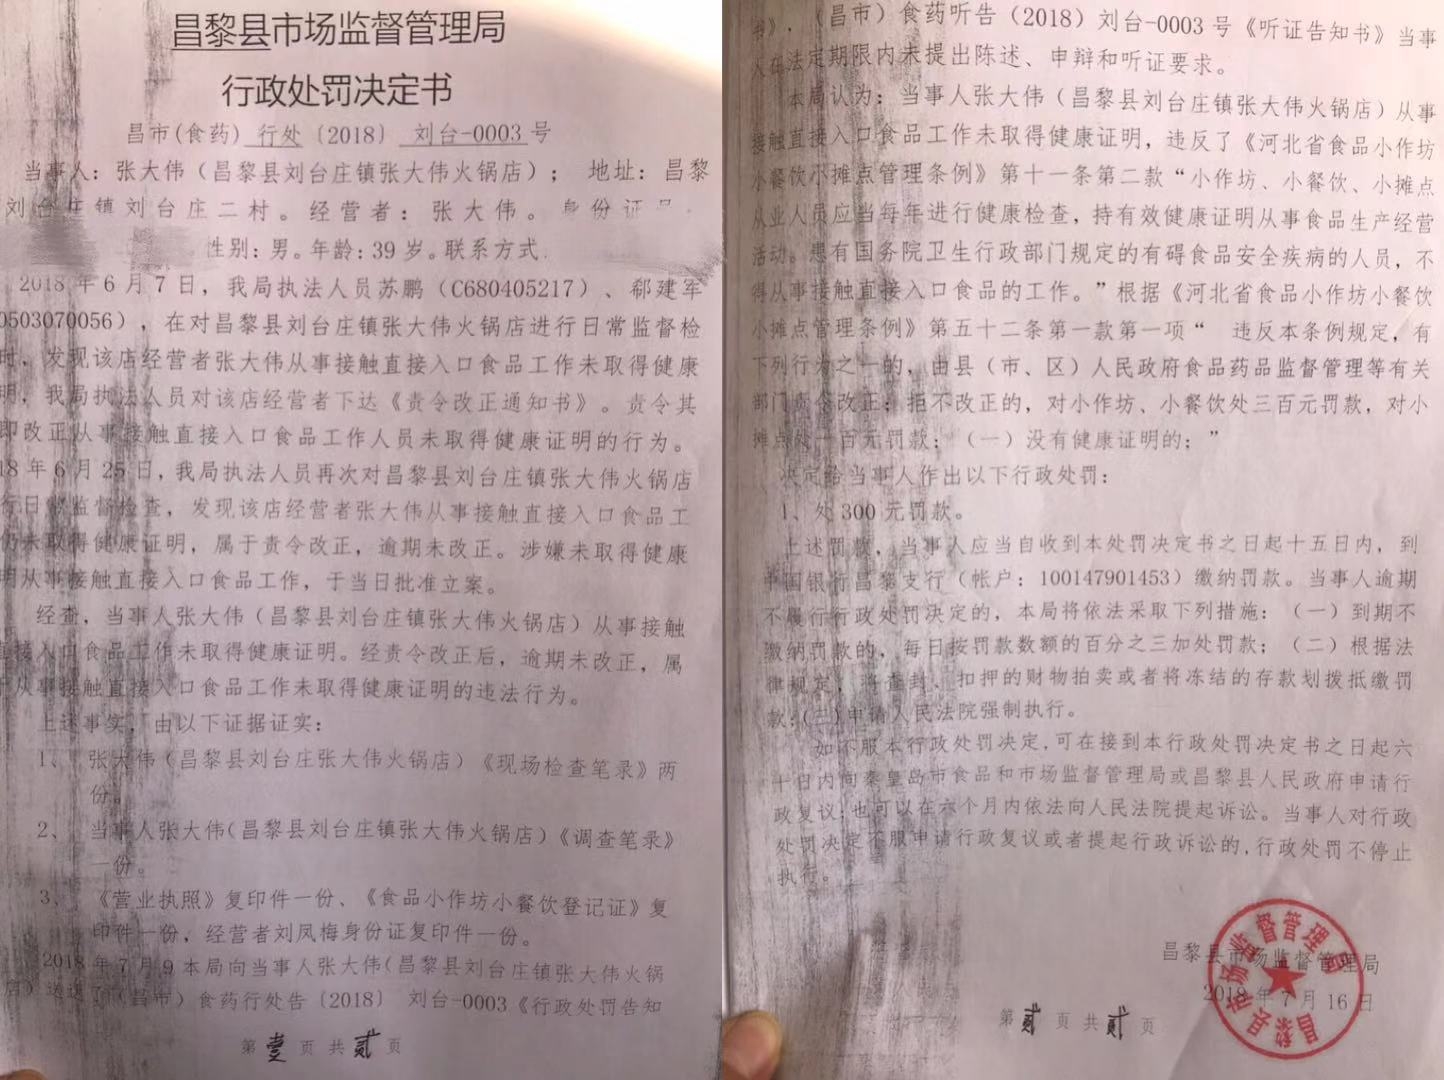 昌黎县市场监督管理局
行政处罚决定书
昌市(食药) 行处〔2018〕 刘台-0003 号
当事人：张大伟（昌黎县刘台庄镇张大伟火锅店）； 地址：昌黎
刘台庄镇刘台庄二村。经营者：张大伟。身份证号
性别：男。年龄：39 岁。联系方式
2018 年 6 月 7 日，我局执法人员苏鹏（C680405217）、郗建军
0503070056），在对昌黎县刘台庄镇张大伟火锅店进行日常监督检
时，发现该店经营者张大伟从事接触直接入口食品工作未取得健康
明，我局执法人员对该店经营者下达《责令改正通知书》。责令其
即改正从事接触直接入口食品工作人员未取得健康证明的行为。
18 年 6 月 25 日，我局执法人员再次对昌黎县刘台庄镇张大伟火锅店
行日常监督检查，发现该店经营者张大伟从事接触直接入口食品工
仍未取得健康证明，属于责令改正，逾期未改正。涉嫌未取得健康
明从事接触直接入口食品工作，于当日批准立案。
经查，当事人张大伟（昌黎县刘台庄镇张大伟火锅店）从事接触
直接入口食品工作未取得健康证明。经责令改正后，逾期未改正，属
于从事接触直接入口食品工作未取得健康证明的违法行为。
上述事实，由以下证据证实：
1、 张大伟（昌黎县刘台庄张大伟火锅店）《现场检查笔录》两
份。
2、 当事人张大伟（昌黎县刘台庄镇张大伟火锅店）《调查笔录》
一份。
3、 《营业执照》复印件一份、《食品小作坊小餐饮登记证》复
印件一份，经营者刘凤梅身份证复印件一份。
2018 年 7 月 9 本局向当事人张大伟（昌黎县刘台庄镇张大伟火锅
店）送达了（昌市）食药行处告〔2018〕 刘台-0003《行政处罚告知
第 壹 页 共 贰 页
书》、（昌市）食药听告（2018）刘台-0003 号《听证告知书》当事
人在法定期限内未提出陈述、申辩和听证要求。
本局认为：当事人张大伟（昌黎县刘台庄镇张大伟火锅店）从事
接触直接入口食品工作未取得健康证明，违反了《河北省食品小作坊
小餐饮小摊点管理条例》第十一条第二款“小作坊、小餐饮、小摊点
从业人员应当每年进行健康检查，持有效健康证明从事食品生产经营
活动。患有国务院卫生行政部门规定的有碍食品安全疾病的人员，不
得从事接触直接入口食品的工作。”根据《河北省食品小作坊小餐饮
小摊点管理条例》第五十二条第一款第一项“ 违反本条例规定，有
下列行为之一的，由县（市、区）人民政府食品药品监督管理等有关
部门责令改正；拒不改正的，对小作坊、小餐饮处三百元罚款，对小
摊点处一百元罚款：（一）没有健康证明的；”
决定给当事人作出以下行政处罚：
1、处 300 元罚款。
上述罚款，当事人应当自收到本处罚决定书之日起十五日内，到
中国银行昌黎支行（帐户：100147901453）缴纳罚款。当事人逾期
不履行行政处罚决定的，本局将依法采取下列措施：（一）到期不
缴纳罚款的，每日按罚款数额的百分之三加处罚款；（二）根据法
律规定，将查封、扣押的财物拍卖或者将冻结的存款划拨抵缴罚
款；(三)申请人民法院强制执行。
如不服本行政处罚决定，可在接到本行政处罚决定书之日起六
十日内向秦皇岛市食品和市场监督管理局或昌黎县人民政府申请行
政复议；也可以在六个月内依法向人民法院提起诉讼。当事人对行政
处罚决定不服申请行政复议或者提起行政诉讼的，行政处罚不停止
执行。
昌黎县市场监督管理局
2018 年 7 月 16 日
昌黎县市场监督管理局
第 贰 页 共 贰 页